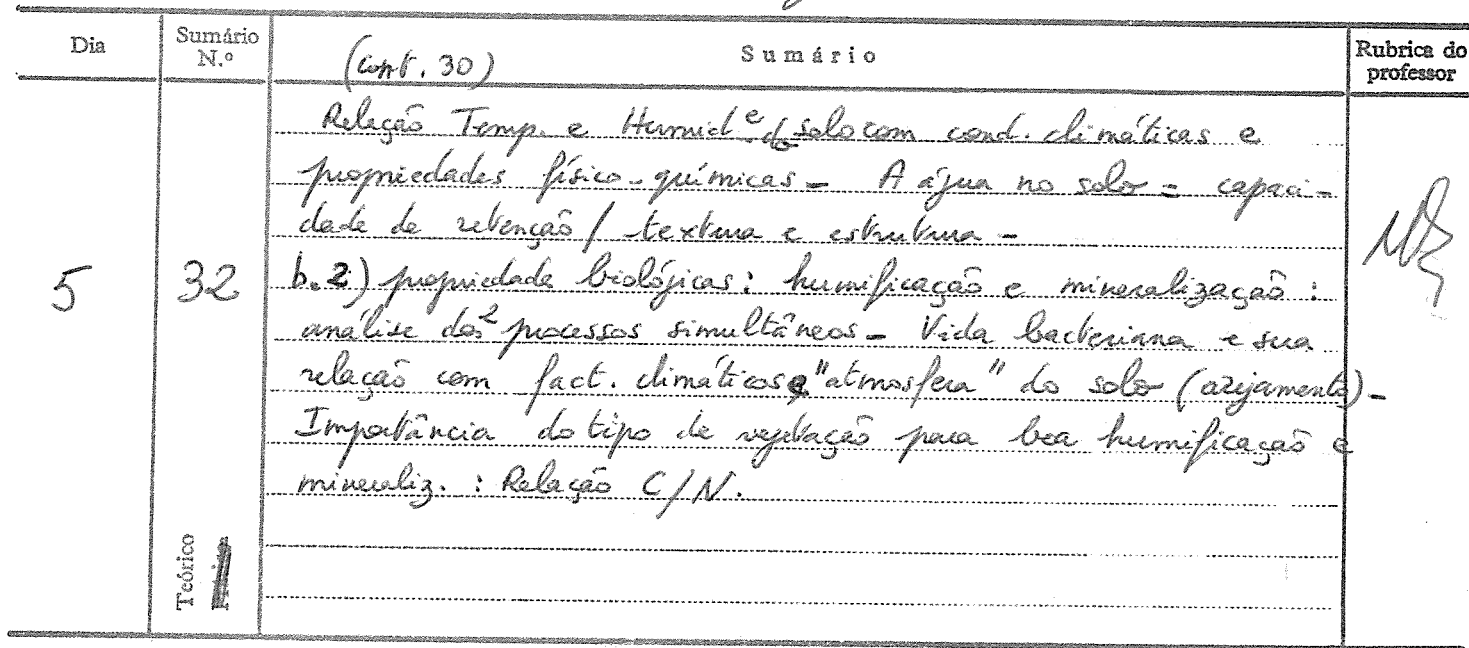 Dia
Sumário N.º
Sumário
Rubrica do professor
(cont. 30)
Relação Temp. e Humid.e do solo com cond. climáticas e
propriedades físico-químicas - A água no solo = capaci-
dade de retenção / textura e estrutura -
5
32
b.2) propriedade biológicas: humificação e mineralização :
análise dos 2 processos simultâneos - Vida bacteriana e sua
relação com fact. climáticos e "atmosfera" do solo (arejamento) -
Importância do tipo de vegetação para boa humificação e
mineraliz. : Relação C/N.
Teórico